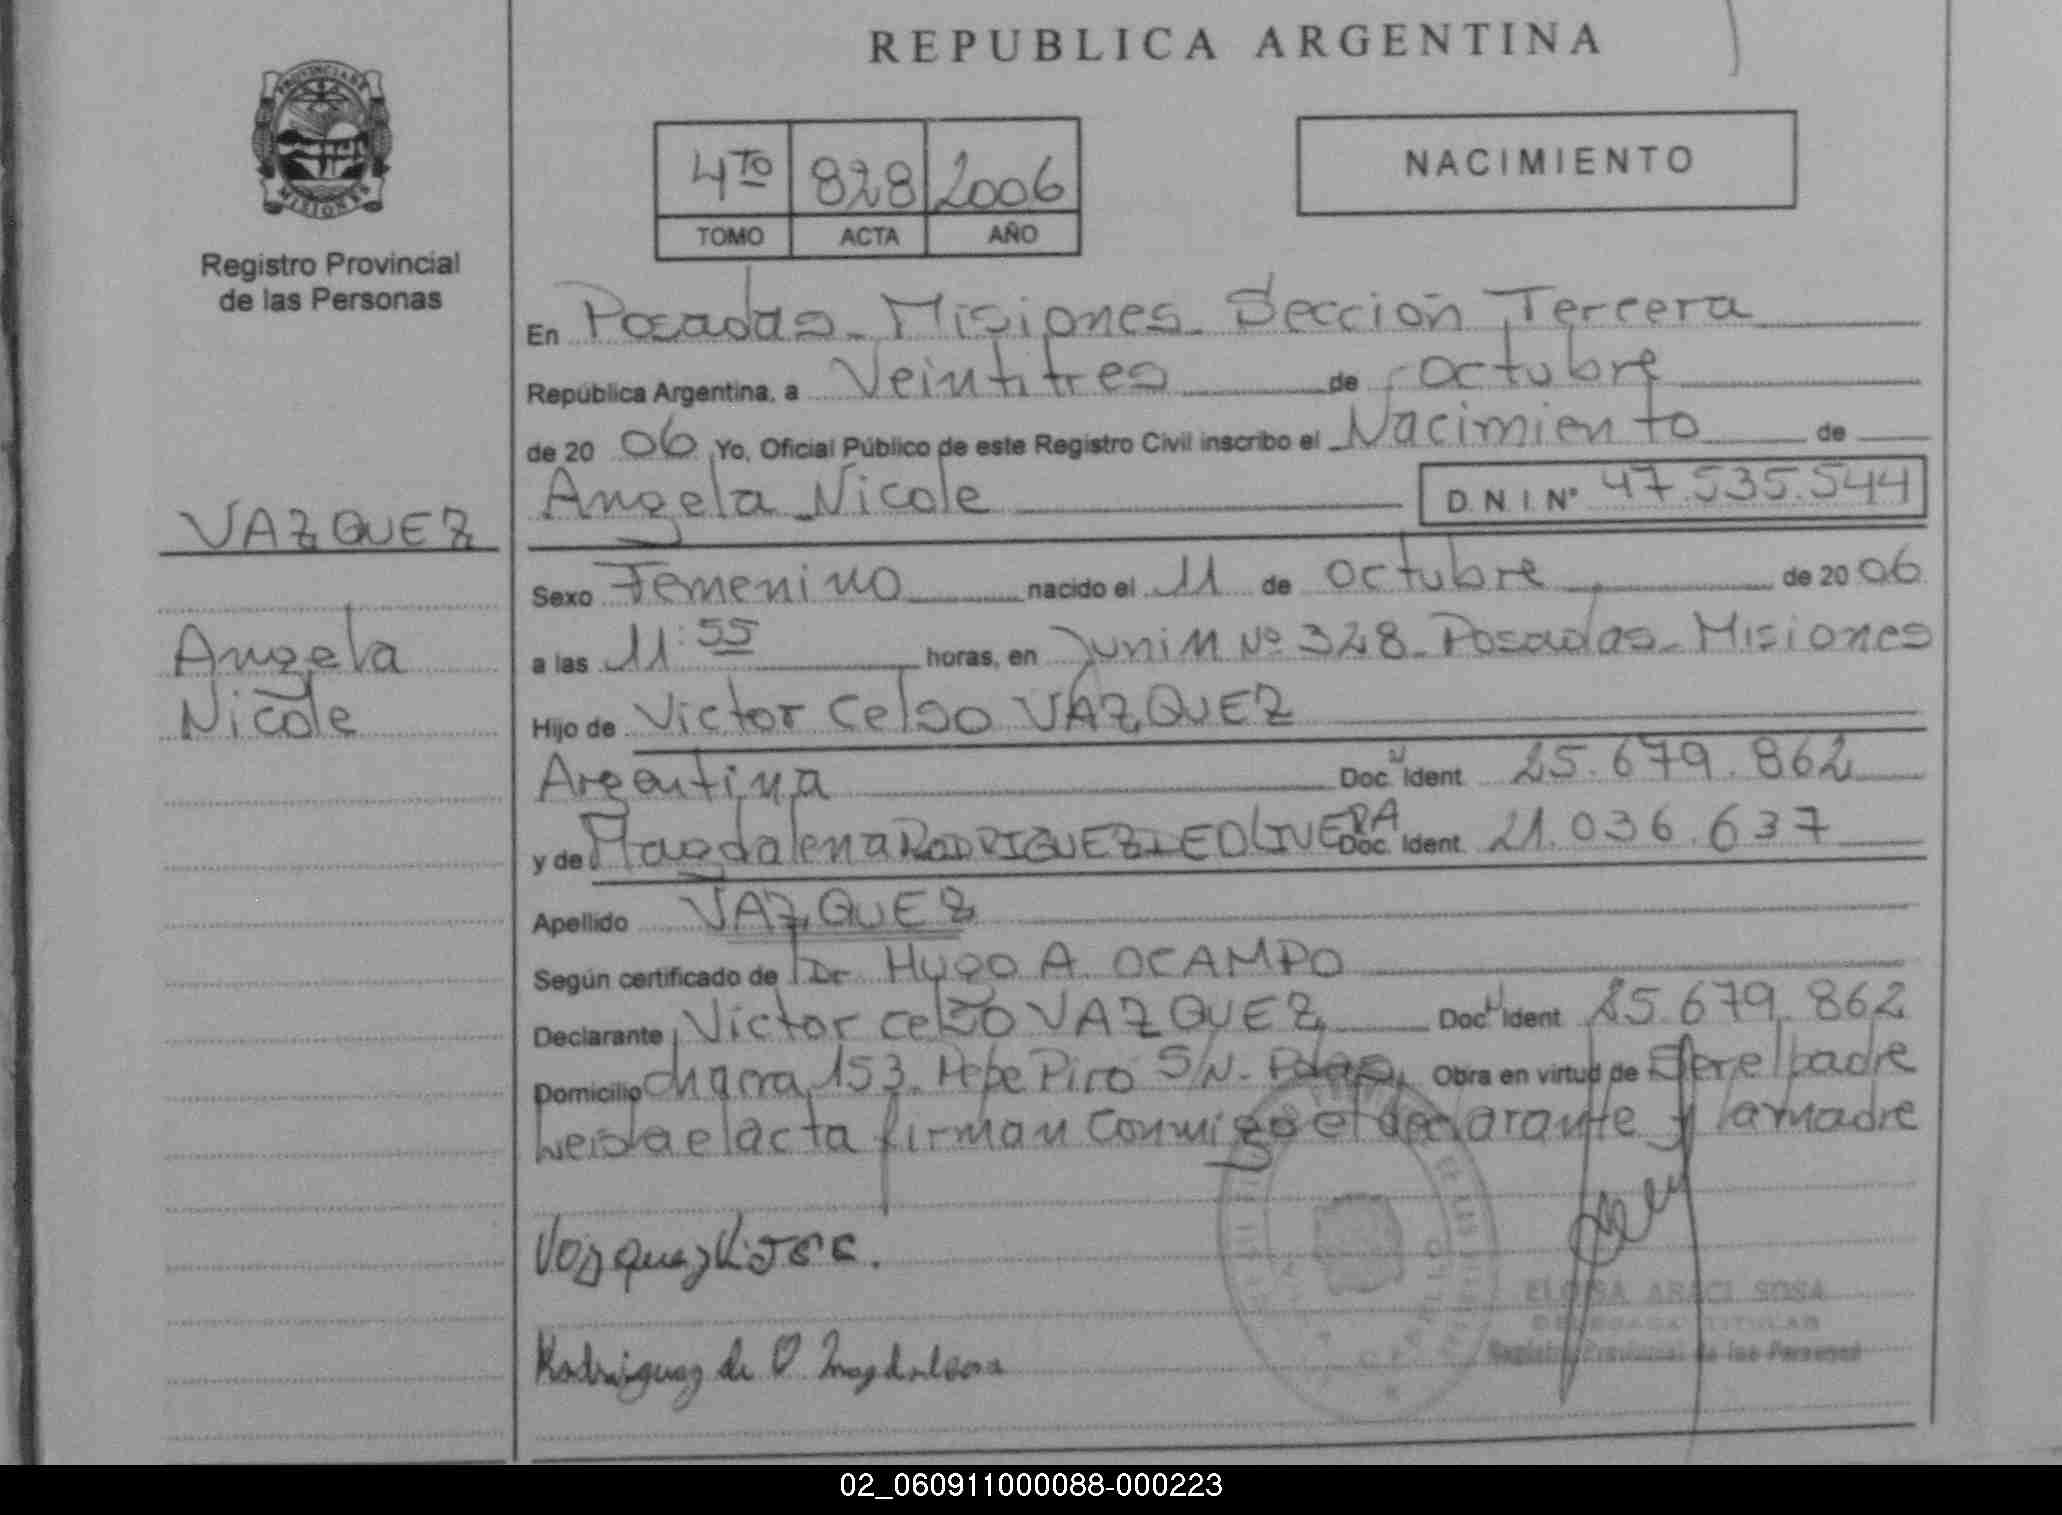 REPUBLICA ARGENTINA
PROVINCIA DE
MISIONES
Registro Provincial
de las Personas
4TO 828 2006
TOMO ACTA AÑO
NACIMIENTO
En Posadas - Misiones - Sección Tercera
República Argentina, a Veintitres de octubre
de 2006 Yo, Oficial Público de este Registro Civil inscribo el Nacimiento de
Angela Nicole D.N.I. N° 47.535.544
VAZQUEZ
Angela
Nicole
Sexo Femenino nacido el 11 de octubre de 2006
a las 11:55 horas, en Junin Nº 328 - Posadas - Misiones
Hijo de Victor Celso VAZQUEZ
Argentina Doc. Ident. 25.679.862
y de Magdalena RODRIGUEZ DE OLIVERA Doc. Ident. 21.036.637
Apellido VAZQUEZ
Según certificado de Dr Hugo A. OCAMPO
Declarante Victor Celso VAZQUEZ Doc Ident 25.679.862
Domicilio chacra 153. Pepe Piro S/N - Pdas, Obra en virtud de Ser el padre
Leida el acta firman conmigo el declarante y la madre
Rodriguez de O Magdalena
ELOISA ARACI SOSA
DELEGADA TITULAR
Registro Provincial de las Personas
02_060911000088-000223